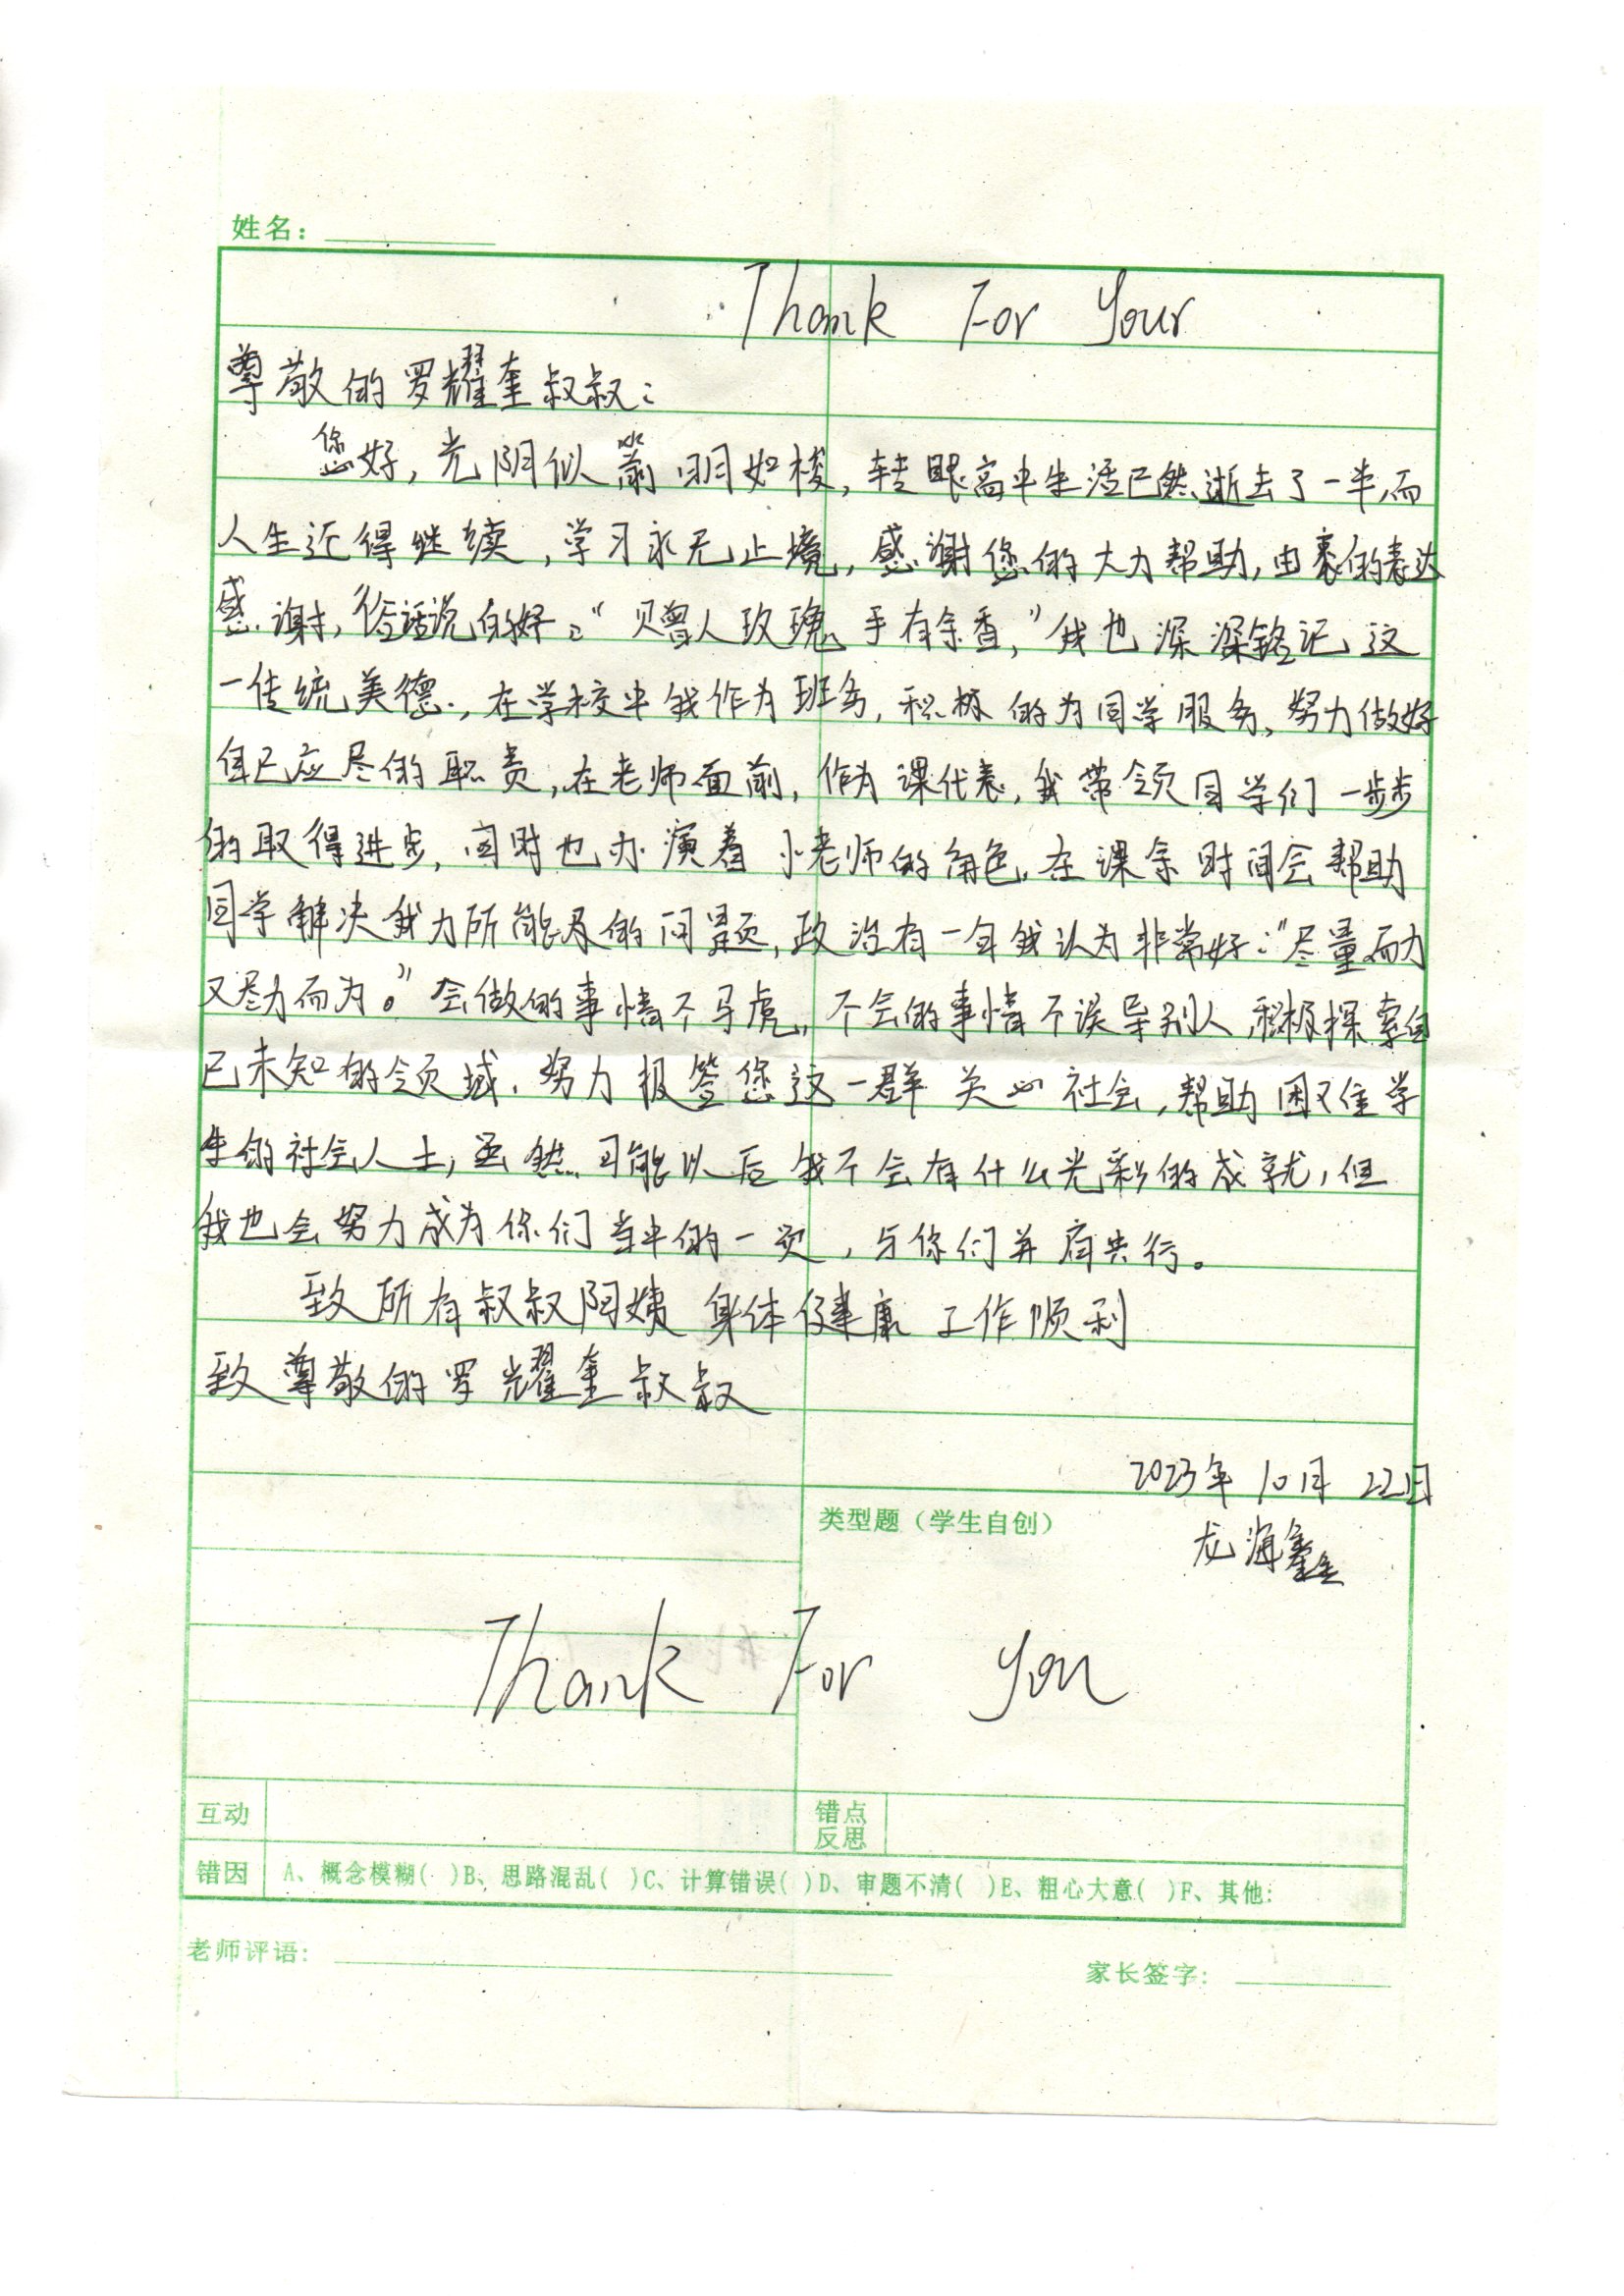 姓名：
Thank For Your
尊敬的罗耀奎叔叔：
您好，光阴似箭明如梭，转眼高中生活已然逝去了一半，而
人生还得继续，学习永无止境，感谢您的大力帮助，由衷的表达
感谢，俗话说的好：“赠人玫瑰、手有余香，”我也深深铭记这
一传统美德，在学校中我作为班务，积极的为同学服务，努力做好
自己应尽的职责，在老师面前，作为课代表，我带领同学们一步步
的取得进步，同时也办演着小老师的角色，在课余时间会帮助
同学解决我力所能及的问题，政治有一句我认为非常好：“尽量而力
又尽力而为。”会做的事情不马虎，不会的事情不误导别人，积极探索自
己未知的领域，努力报答您这一群关心社会，帮助困难学
生的社会人士，虽然可能以后我不会有什么光彩的成就，但
我也会努力成为你们当中的一员，与你们并肩共行。
致所有叔叔阿姨 身体健康 工作顺利
致尊敬的罗耀奎叔叔
2023年10月22日
类型题（学生自创）
龙海鑫
Thank For you
互动
错点
反思
错因 A、概念模糊( )B、思路混乱( )C、计算错误( )D、审题不清( )E、粗心大意( )F、其他:
老师评语:
家长签字: